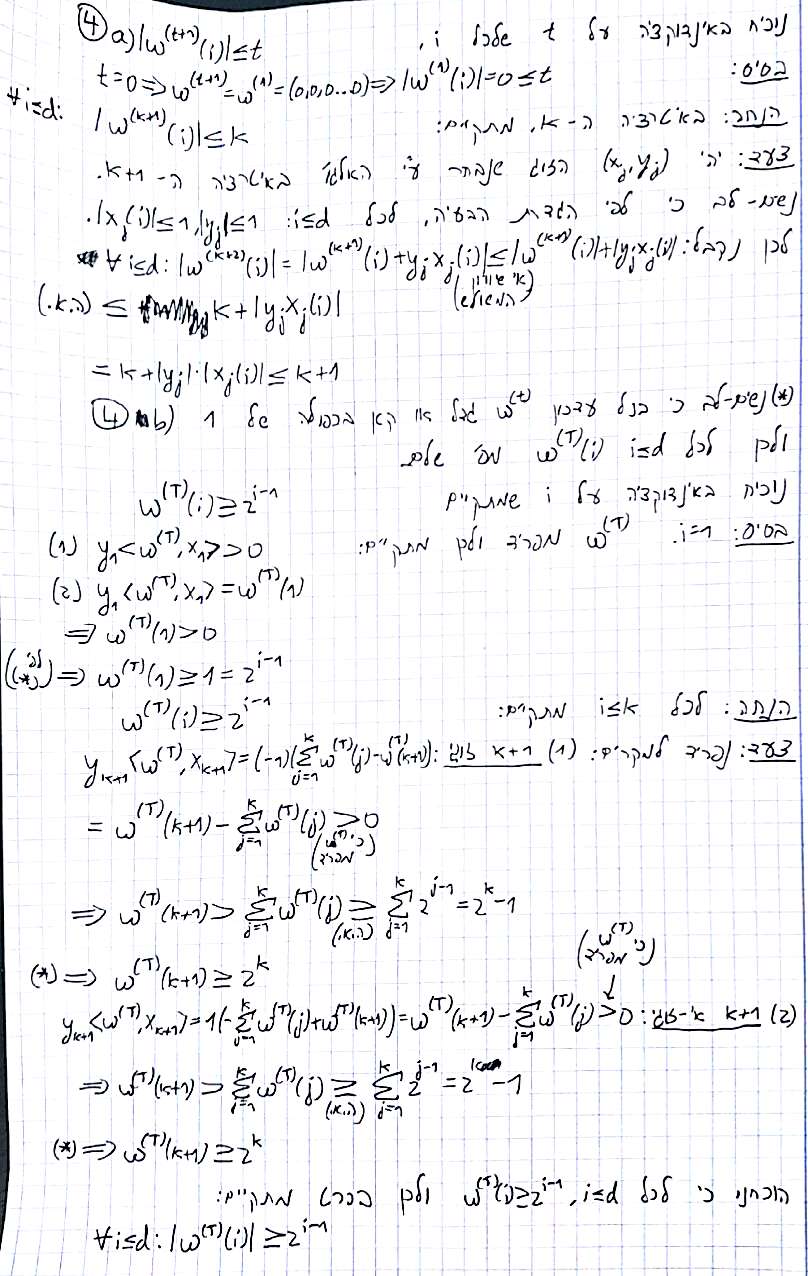 ④ a) |w^(t+1)(i)| ≤ t נוכיח באינדוקציה על t שלכל i,
בסיס: t=0 ⟹ w^(t+1) = w^(1) = (0,0,0...0) ⟹ |w^(1)(i)| = 0 ≤ t
הנחה: באיטרציה ה-k, מתקיים: ∀i≤d: |w^(k+1)(i)| ≤ k
צעד: יהי (x_j, y_j) הזוג שנבחר ע"י האלג' באיטרציה ה-k+1.
נשים-לב כי לפי הגדרת הבעיה, לכל i≤d: |x_j(i)| ≤ 1, |y_j| ≤ 1.
לכן נקבל: ∀i≤d: |w^(k+2)(i)| = |w^(k+1)(i) + y_j x_j(i)| ≤ |w^(k+1)(i)| + |y_j x_j(i)|
(אי שוויון המשולש)
(ה.א.) ≤ k + |y_j x_j(i)|
= k + |y_j|·|x_j(i)| ≤ k+1
④ b) (*) נשים-לב כי בכל עדכון w^(t) גדל או קטן בכפולה של 1
ולכן לכל i≤d w^(T)(i) מס' שלם.
נוכיח באינדוקציה על i שמתקיים w^(T)(i) ≥ 2^(i-1)
בסיס: i=1. w^(T) מפריד ולכן מתקיים: (1) y_1<w^(T), x_1> > 0
(2) y_1<w^(T), x_1> = w^(T)(1)
⟹ w^(T)(1) > 0
(לפי (*)) ⟹ w^(T)(1) ≥ 1 = 2^(i-1)
הנחה: לכל i≤k מתקיים: w^(T)(i) ≥ 2^(i-1)
צעד: נפריד למקרים: (1) k+1 זוגי: y_(k+1)<w^(T), x_(k+1)> = (-1)(∑_(j=1)^k w^(T)(j) - w^(T)(k+1))
= w^(T)(k+1) - ∑_(j=1)^k w^(T)(j) > 0
(כי w^(T) מפריד)
⟹ w^(T)(k+1) > ∑_(j=1)^k w^(T)(j) ≥ ∑_(j=1)^k 2^(j-1) = 2^k - 1
(ה.א.)
(*) ⟹ w^(T)(k+1) ≥ 2^k
(כי w^(T) מפריד)
(2) k+1 אי-זוגי: y_(k+1)<w^(T), x_(k+1)> = 1(-∑_(j=1)^k w^(T)(j) + w^(T)(k+1)) = w^(T)(k+1) - ∑_(j=1)^k w^(T)(j) > 0
⟹ w^(T)(k+1) > ∑_(j=1)^k w^(T)(j) ≥ ∑_(j=1)^k 2^(j-1) = 2^k - 1
(ה.א.)
(*) ⟹ w^(T)(k+1) ≥ 2^k
הוכחנו כי לכל i≤d, w^(T)(i) ≥ 2^(i-1) ולכן בפרט מתקיים:
∀i≤d: |w^(T)(i)| ≥ 2^(i-1)